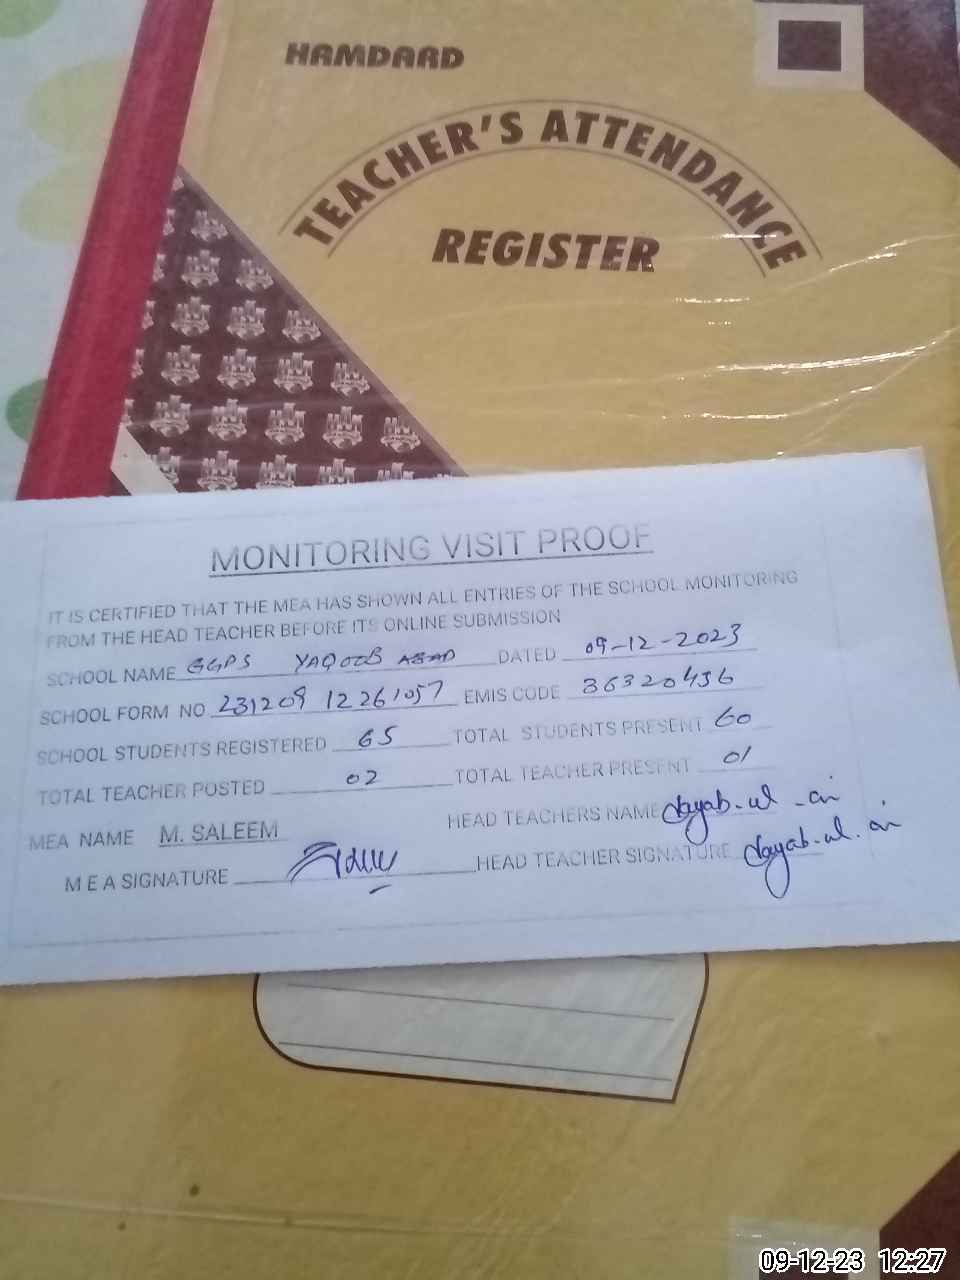 HAMDARD
TEACHER'S ATTENDANCE
REGISTER
MONITORING VISIT PROOF
IT IS CERTIFIED THAT THE MEA HAS SHOWN ALL ENTRIES OF THE SCHOOL MONITORING
FROM THE HEAD TEACHER BEFORE ITS ONLINE SUBMISSION
SCHOOL NAME GGPS YAQOOB ABAD DATED 09-12-2023
SCHOOL FORM NO 231209 12261057 EMIS CODE 36320436
SCHOOL STUDENTS REGISTERED 65 TOTAL STUDENTS PRESENT 60
TOTAL TEACHER POSTED 02 TOTAL TEACHER PRESENT 01
MEA NAME M. SALEEM HEAD TEACHERS NAME
M E A SIGNATURE HEAD TEACHER SIGNATURE
09-12-23 12:27